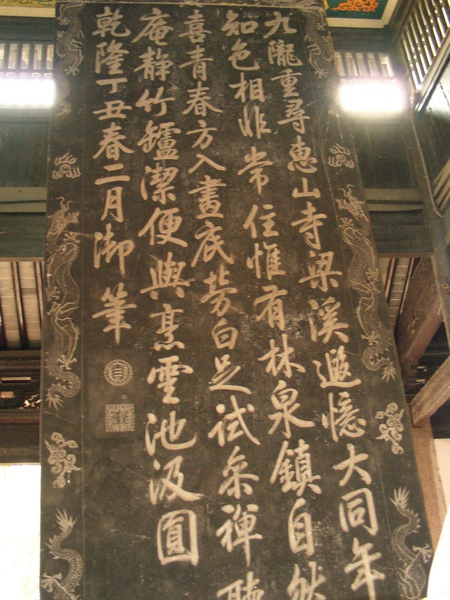 九隴重尋惠山寺梁溪遐憶大同年
知色相非常住惟有林泉鎮自然
喜青春方入畫底勞白足試參禪聽
庵靜竹罏潔便與烹雲池汲圓
乾隆丁丑春二月御筆